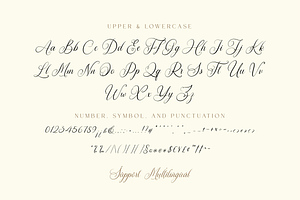 UPPER & LOWERCASE
Aa Bb Cc Dd Ee Ff Gg Hh Ii Jj Kk
Ll Mm Nn Oo Pp Qq Rr Ss Tt Uu Vv
Ww Xx Yy Zz
NUMBER, SYMBOL, AND PUNCTUATION
0123456789
Support Multilingual